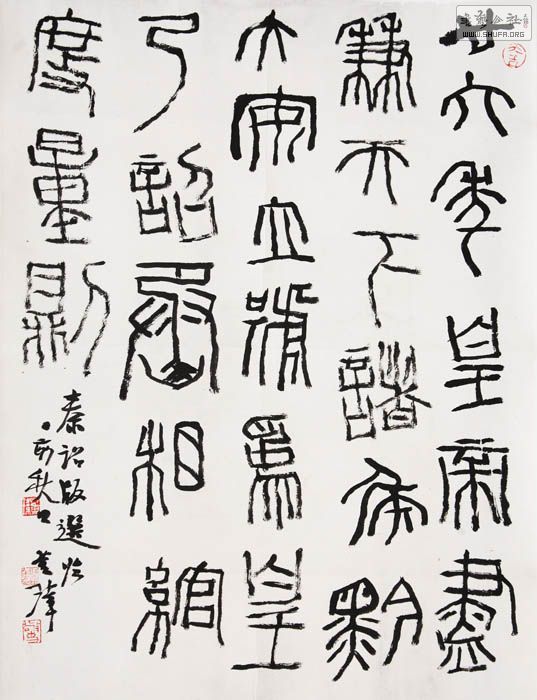 廿六年皇帝盡
兼天下諸侯黔
大安立號為皇
乃詔丞相綰
度量則
秦詔版選臨
亥秋
WWW.SHUFA.ORG